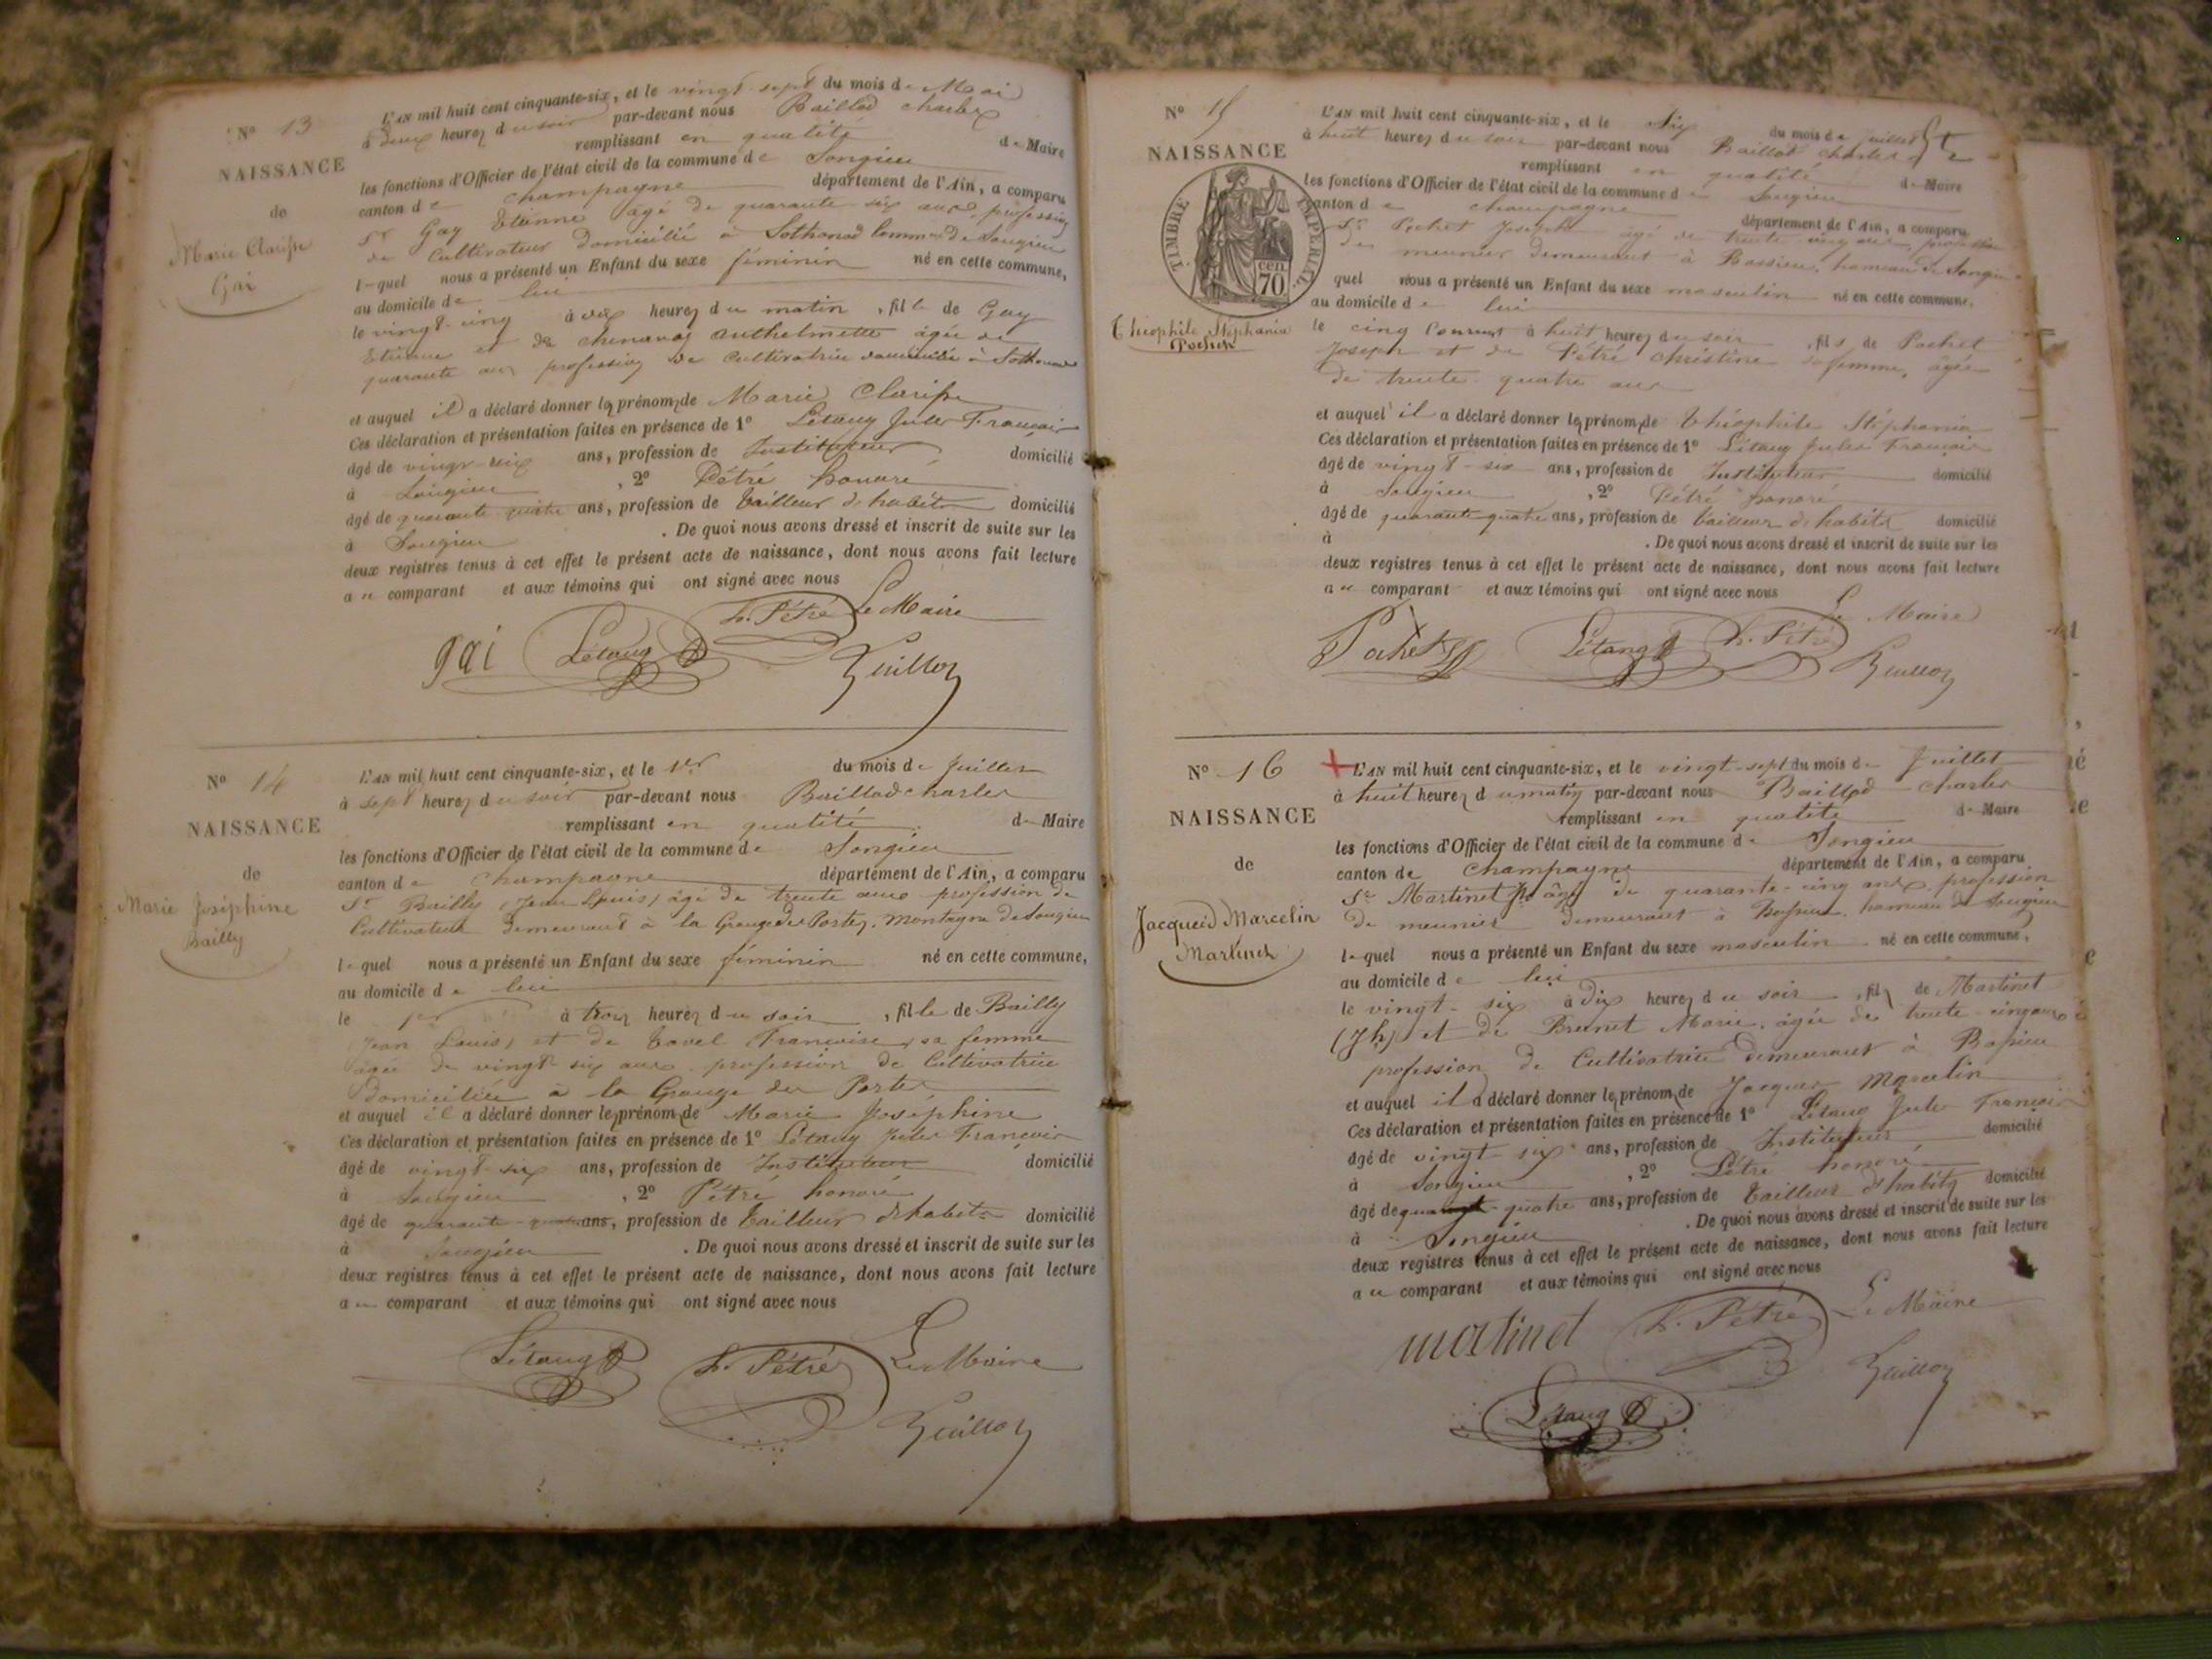 N° 13
NAISSANCE
de
Marie Clarisse
Gai
L'AN mil huit cent cinquante-six, et le vingt-sept du mois de Mai
à deux heures du soir par-devant nous Baillod Charles
remplissant en qualité de Maire
les fonctions d'Officier de l'état civil de la commune de Songieu
canton de Champagne département de l'Ain, a comparu
Sr Gay Etienne âgé de quarante-six ans, profession
de Cultivateur domicilié à Sothonod Commune de Songieu
lequel nous a présenté un Enfant du sexe féminin né en cette commune,
au domicile de lui
le vingt-cinq à dix heures du matin, fille de Gay
Etienne et de Chenavaz Anthelmette âgée de
quarante ans profession de Cultivatrice domiciliée à Sothonod
et auquel il a déclaré donner les prénoms de Marie Clarisse
Ces déclaration et présentation faites en présence de 1° Létang Jules François
âgé de vingt-six ans, profession de Instituteur domicilié
à Songieu, 2° Pétré honoré
âgé de quarante quatre ans, profession de tailleur d'habits domicilié
à Songieu. De quoi nous avons dressé et inscrit de suite sur les
deux registres tenus à cet effet le présent acte de naissance, dont nous avons fait lecture
au comparant et aux témoins qui ont signé avec nous
gai Létang h. Pétré Le Maire
N° 14
NAISSANCE
de
Marie Joséphine
Bailly
L'AN mil huit cent cinquante-six, et le 1er du mois de Juillet
à sept heures du soir par-devant nous Baillod Charles
remplissant en qualité de Maire
les fonctions d'Officier de l'état civil de la commune de Songieu
canton de Champagne département de l'Ain, a comparu
Sr Bailly (Jean Louis) âgé de trente ans profession de
Cultivateur demeurant à la Grange des Portes, Montagne de Songieu
lequel nous a présenté un Enfant du sexe féminin né en cette commune,
au domicile de lui
le 1er à trois heures du soir, fille de Bailly
(Jean Louis) et de Tavel Françoise, sa femme
âgée de vingt six ans profession de Cultivatrice
domiciliée à la Grange des Portes
et auquel il a déclaré donner les prénoms de Marie Joséphine
Ces déclaration et présentation faites en présence de 1° Létang Jules François
âgé de vingt-six ans, profession de Instituteur domicilié
à Songieu, 2° Pétré honoré
âgé de quarante-quatre ans, profession de tailleur d'habits domicilié
à Songieu. De quoi nous avons dressé et inscrit de suite sur les
deux registres tenus à cet effet le présent acte de naissance, dont nous avons fait lecture
au comparant et aux témoins qui ont signé avec nous
Létang h. Pétré Le Maire
N° 15
NAISSANCE
TIMBRE IMPÉRIAL
70 cen
Théophile Stéphania
Pochet
L'AN mil huit cent cinquante-six, et le Six du mois de Juillet
à huit heures du soir par-devant nous Baillod Charles
remplissant en qualité de Maire
les fonctions d'Officier de l'état civil de la commune de Songieu
canton de Champagne département de l'Ain, a comparu
Sr Pochet Joseph âgé de trente cinq ans, profession
de meunier demeurant à Bassieu, hameau de Songieu
quel nous a présenté un Enfant du sexe masculin né en cette commune,
au domicile de lui
le cinq Courant à huit heures du soir, fils de Pochet
Joseph et de Pétré Christine sa femme, âgée
de trente-quatre ans
et auquel il a déclaré donner les prénoms de Théophile Stéphania
Ces déclaration et présentation faites en présence de 1° Létang Jules François
âgé de vingt-six ans, profession de Instituteur domicilié
à Songieu, 2° Pétré honoré
âgé de quarante quatre ans, profession de tailleur d'habits domicilié
à. De quoi nous avons dressé et inscrit de suite sur les
deux registres tenus à cet effet le présent acte de naissance, dont nous avons fait lecture
au comparant et aux témoins qui ont signé avec nous
Pochet Létang h. Pétré Le Maire
N° 16
NAISSANCE
de
Jacques Marcelin
Martinet
L'AN mil huit cent cinquante-six, et le vingt-sept du mois de Juillet
à huit heures du matin par-devant nous Baillod Charles
remplissant en qualité de Maire
les fonctions d'Officier de l'état civil de la commune de Songieu
canton de Champagne département de l'Ain, a comparu
Sr Martinet Jh âgé de quarante-cinq ans profession
de meunier demeurant à Bassieu, hameau de Songieu
lequel nous a présenté un Enfant du sexe masculin né en cette commune,
au domicile de lui
le vingt-six à dix heures du soir, fils de Martinet
(Jh) et de Brunet Marie, âgée de trente-cinq ans
profession de Cultivatrice demeurant à Bassieu
et auquel il a déclaré donner les prénoms de Jacques Marcelin
Ces déclaration et présentation faites en présence de 1° Létang Jules François
âgé de vingt-six ans, profession de Instituteur domicilié
à Songieu, 2° Pétré honoré
âgé de quarante-quatre ans, profession de tailleur d'habits domicilié
à Songieu. De quoi nous avons dressé et inscrit de suite sur les
deux registres tenus à cet effet le présent acte de naissance, dont nous avons fait lecture
au comparant et aux témoins qui ont signé avec nous
martinet h. Pétré Le Maire
Létang